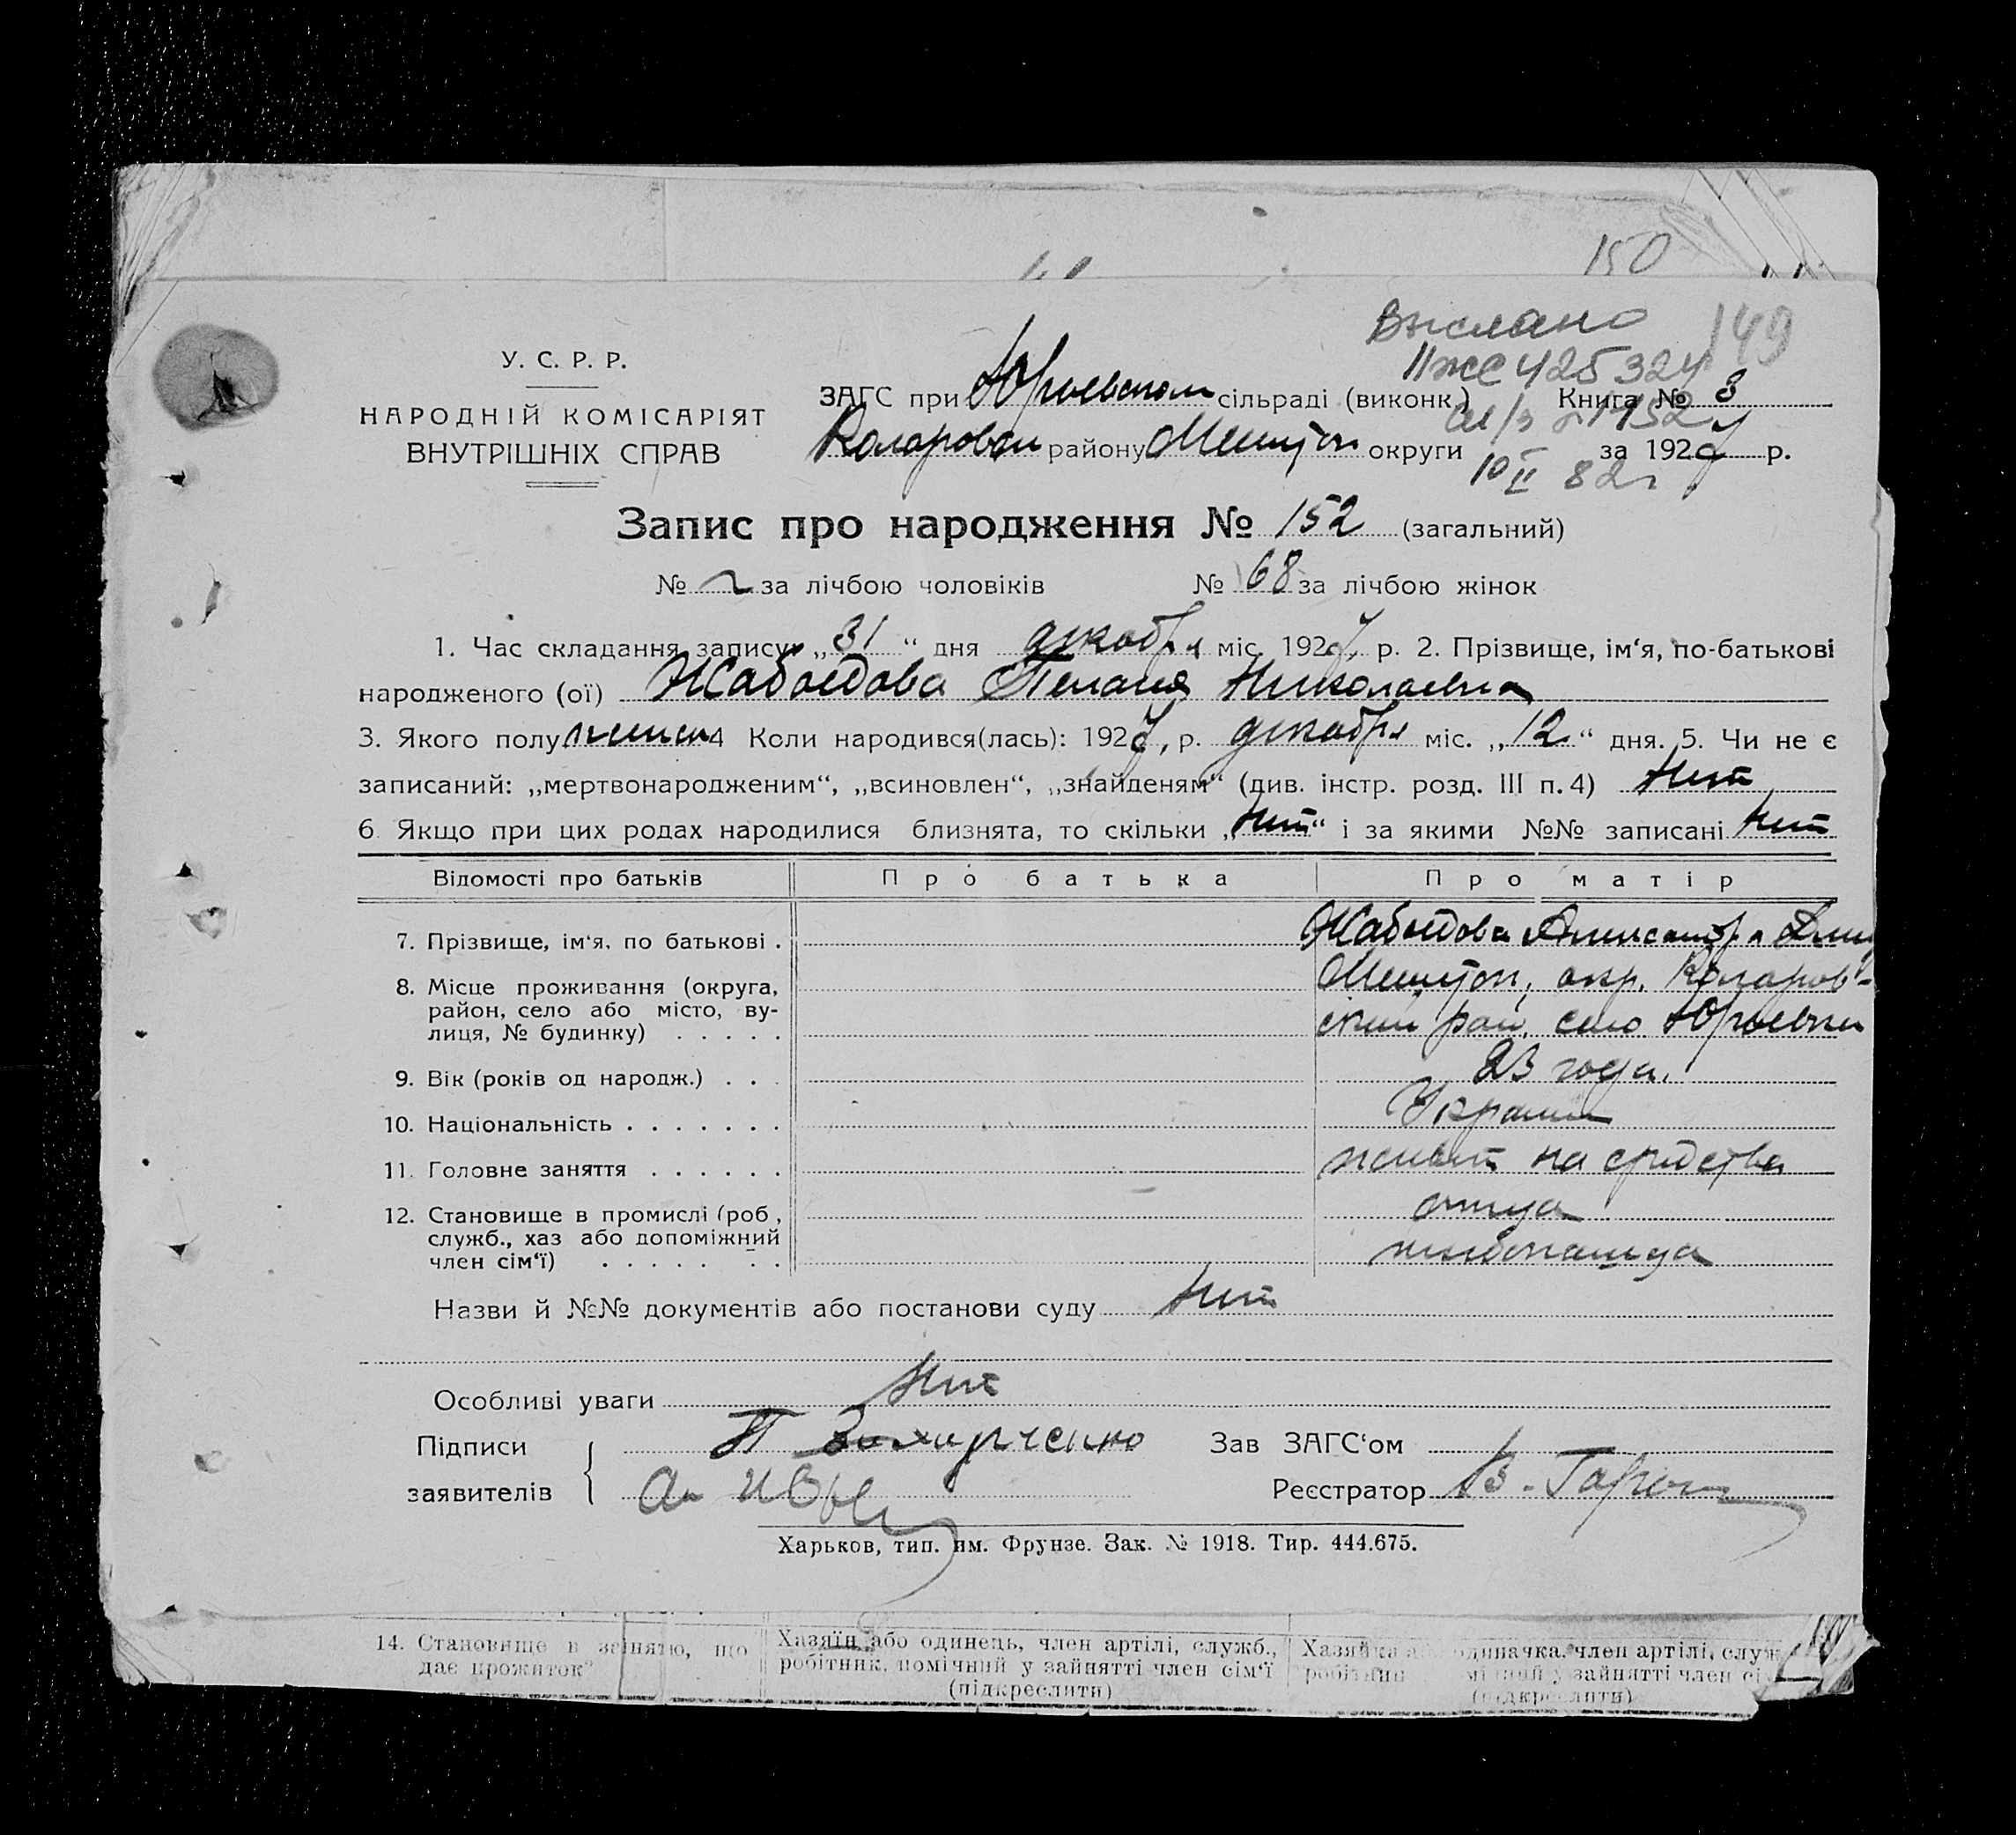 150
Выслано 149
II ЖС 425324
У. С. Р. Р.
НАРОДНІЙ КОМІСАРІЯТ
ВНУТРІШНІХ СПРАВ
ЗАГС при Юрьевском сільраді (виконк.) Книга № 3
Коларовск району Мелитоп округи за 1927 р.
10 II 82г
Запис про народження № 152 (загальний)
№ за лічбою чоловіків № 68 за лічбою жінок
1. Час складання запису „31“ дня декабря міс. 1927 р. 2. Прізвище, ім‘я, по-батькові
народженого (ої) Жабоедова Пелагия Николаевна
3. Якого полу женск 4 Коли народився(лась): 1927, р. декабря міс. „12“ дня. 5. Чи не є
записаний: „мертвонародженим“, „всиновлен“, „знайденям“ (див. інстр. розд. III п. 4) Нет
6. Якщо при цих родах народилися близнята, то скільки „Нет“ і за якими №№ записані Нет
Відомості про батьків Про батька Про матір
7. Прізвище, ім‘я, по батькові . Жабоедова Александра Дми
8. Місце проживання (округа, Мелитоп, окр. Коларов-
район, село або місто, ву-
лиця, № будинку) . . . . . ский рай, село Юрьевка
9. Вік (років од народж.) . . . 23 года.
10. Національність . . . . . . . Украин
11. Головне заняття . . . . . . живет на средства
12. Становище в промислі (роб., отца
служб., хаз або допоміжний
член сім‘ї) . . . . . . . хлебопашца
Назви й №№ документів або постанови суду Нет
Особливі уваги Нет
Підписи П Захарченко Зав ЗАГС‘ом
заявителів Реєстратор В.
Харьков, тип. им. Фрунзе. Зак. № 1918. Тир. 444.675.
14. Становище в занятю, що
дає прожиток
Хазяїн або одинець, член артілі, служб.,
робітник, помічний у зайнятті член сім‘ї
(підкреслити)
Хазяйка або одиначка, член артілі, служ
у зайнятті член сі
(підкреслити)